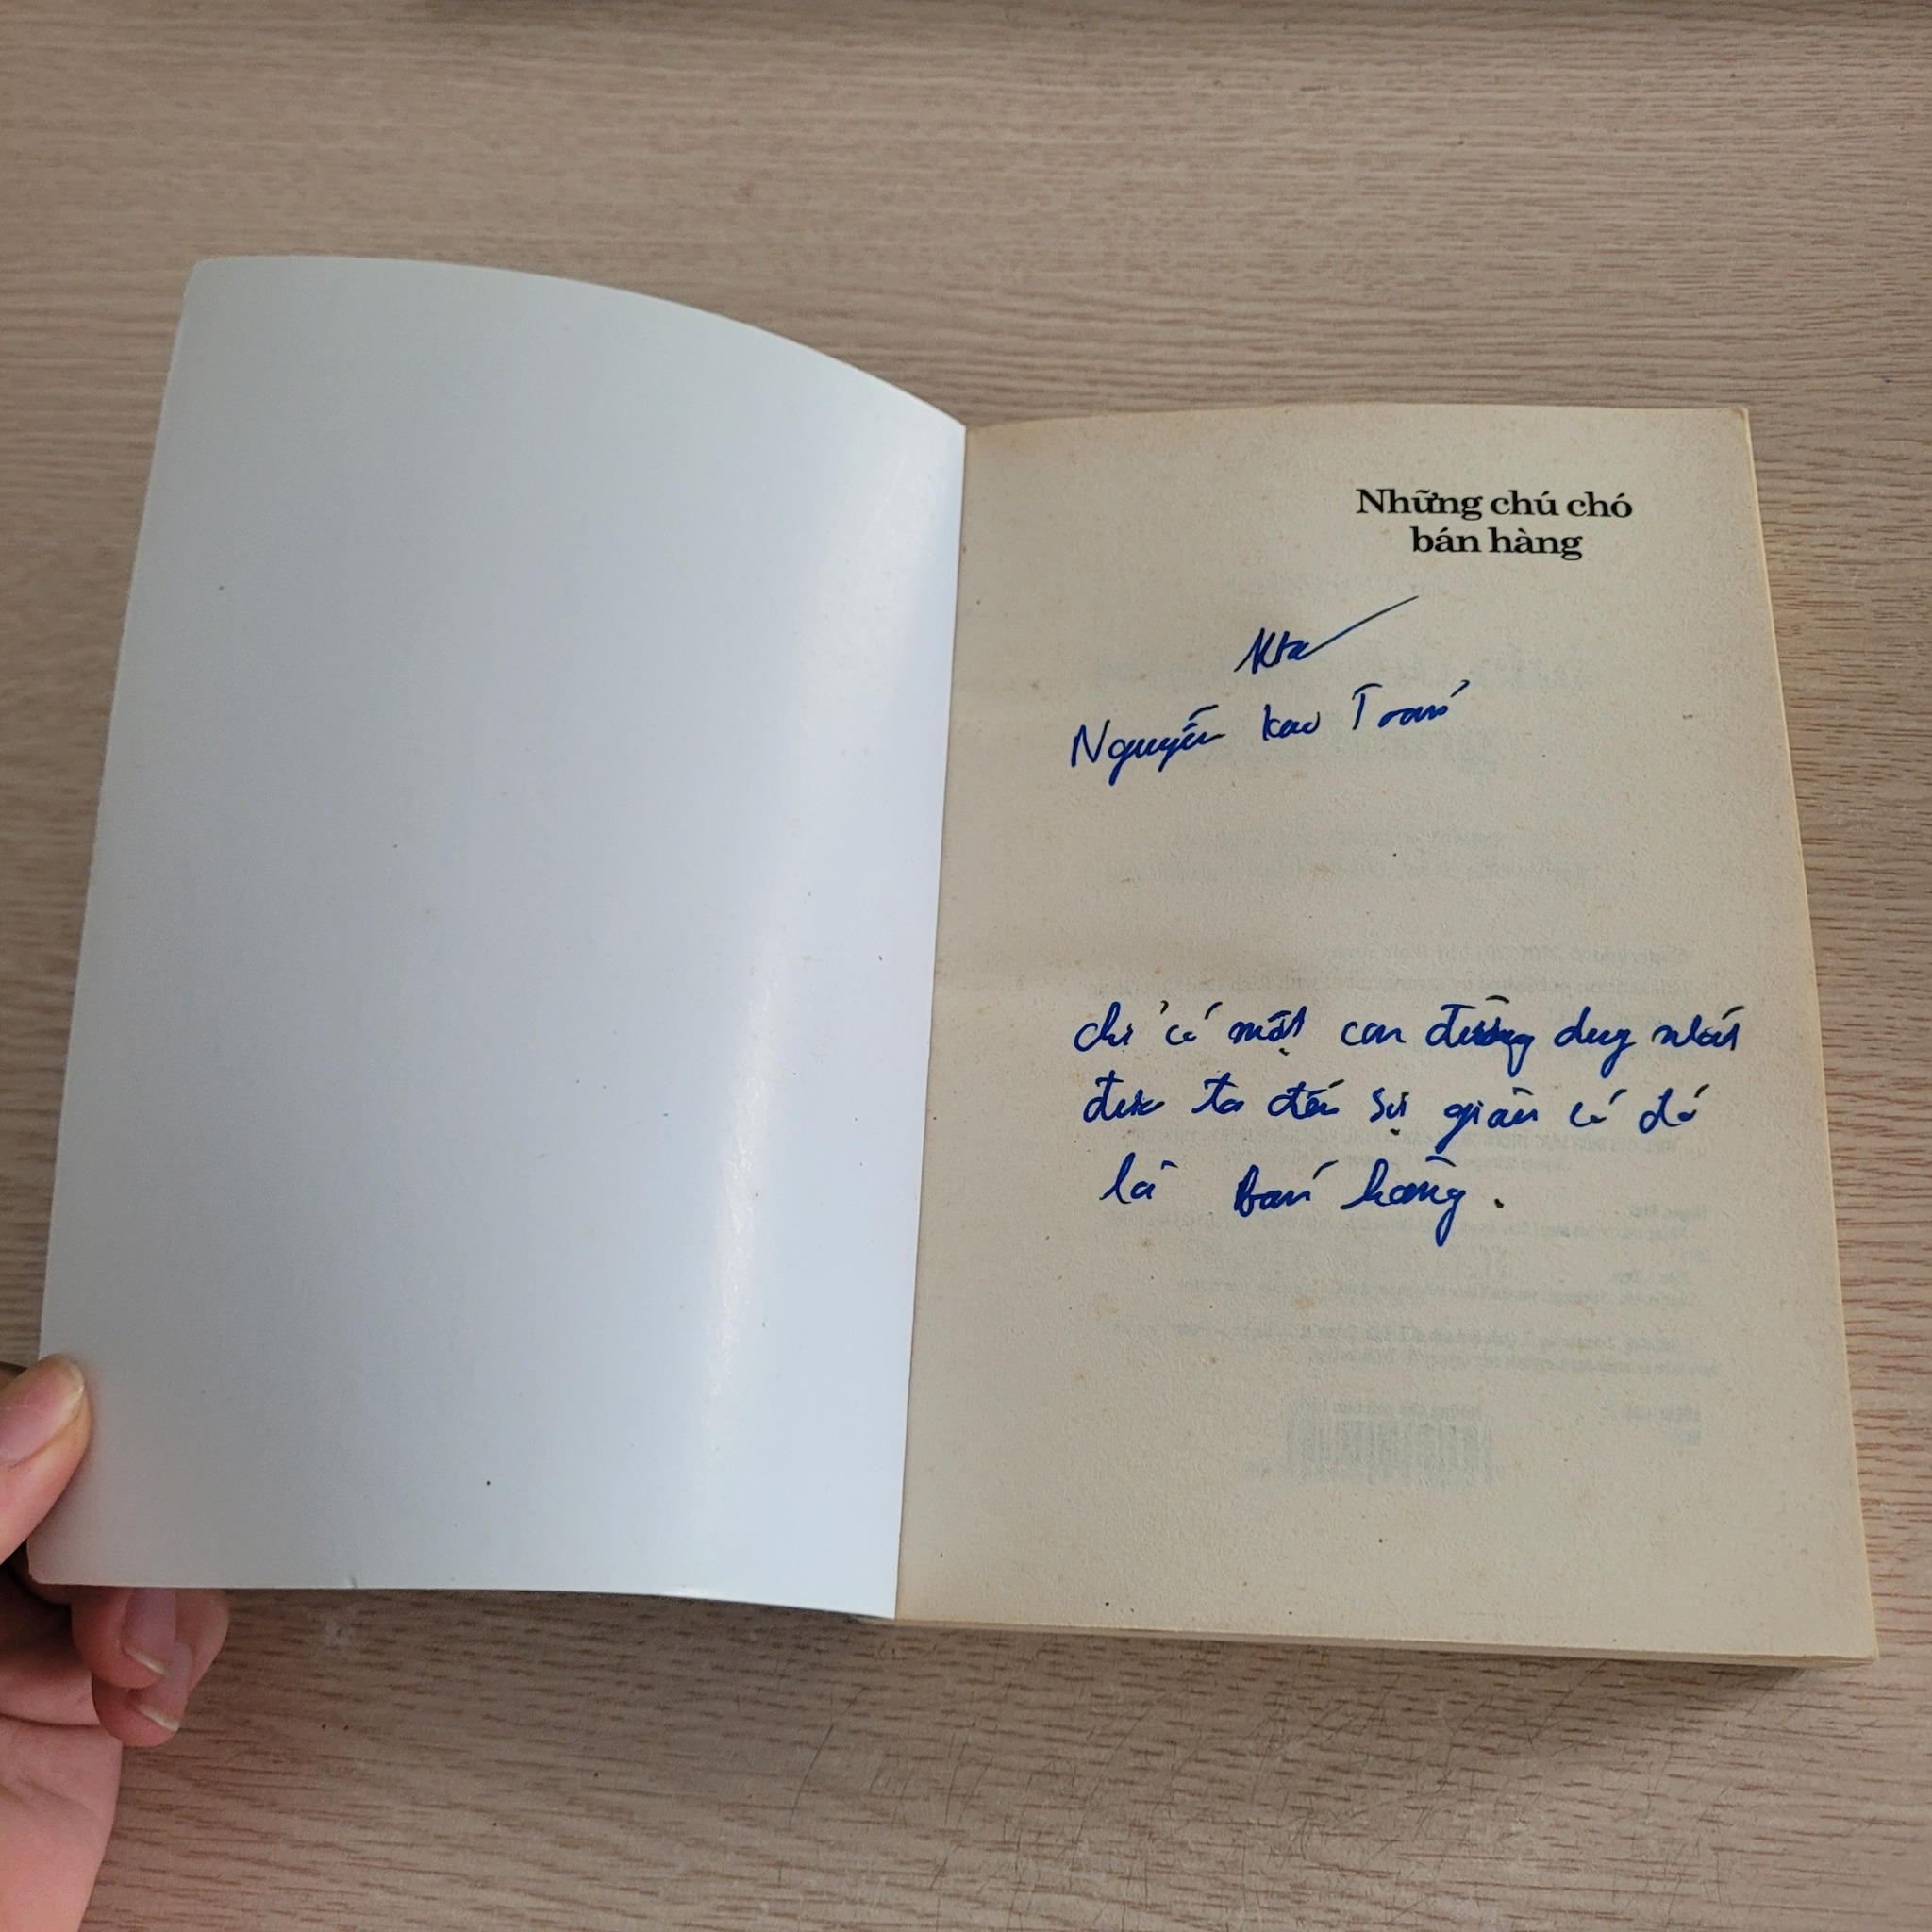 Những chú chó
bán hàng
Nguyễn Kao Toán
chỉ có một con đường duy nhất
đưa ta đến sự giàu có đó
là bán hàng.